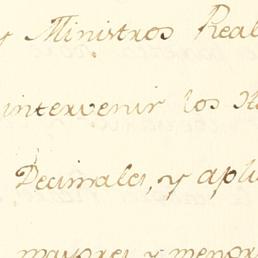 y Ministros Real
intervenir los
Decimales, y apli
mayores y menor